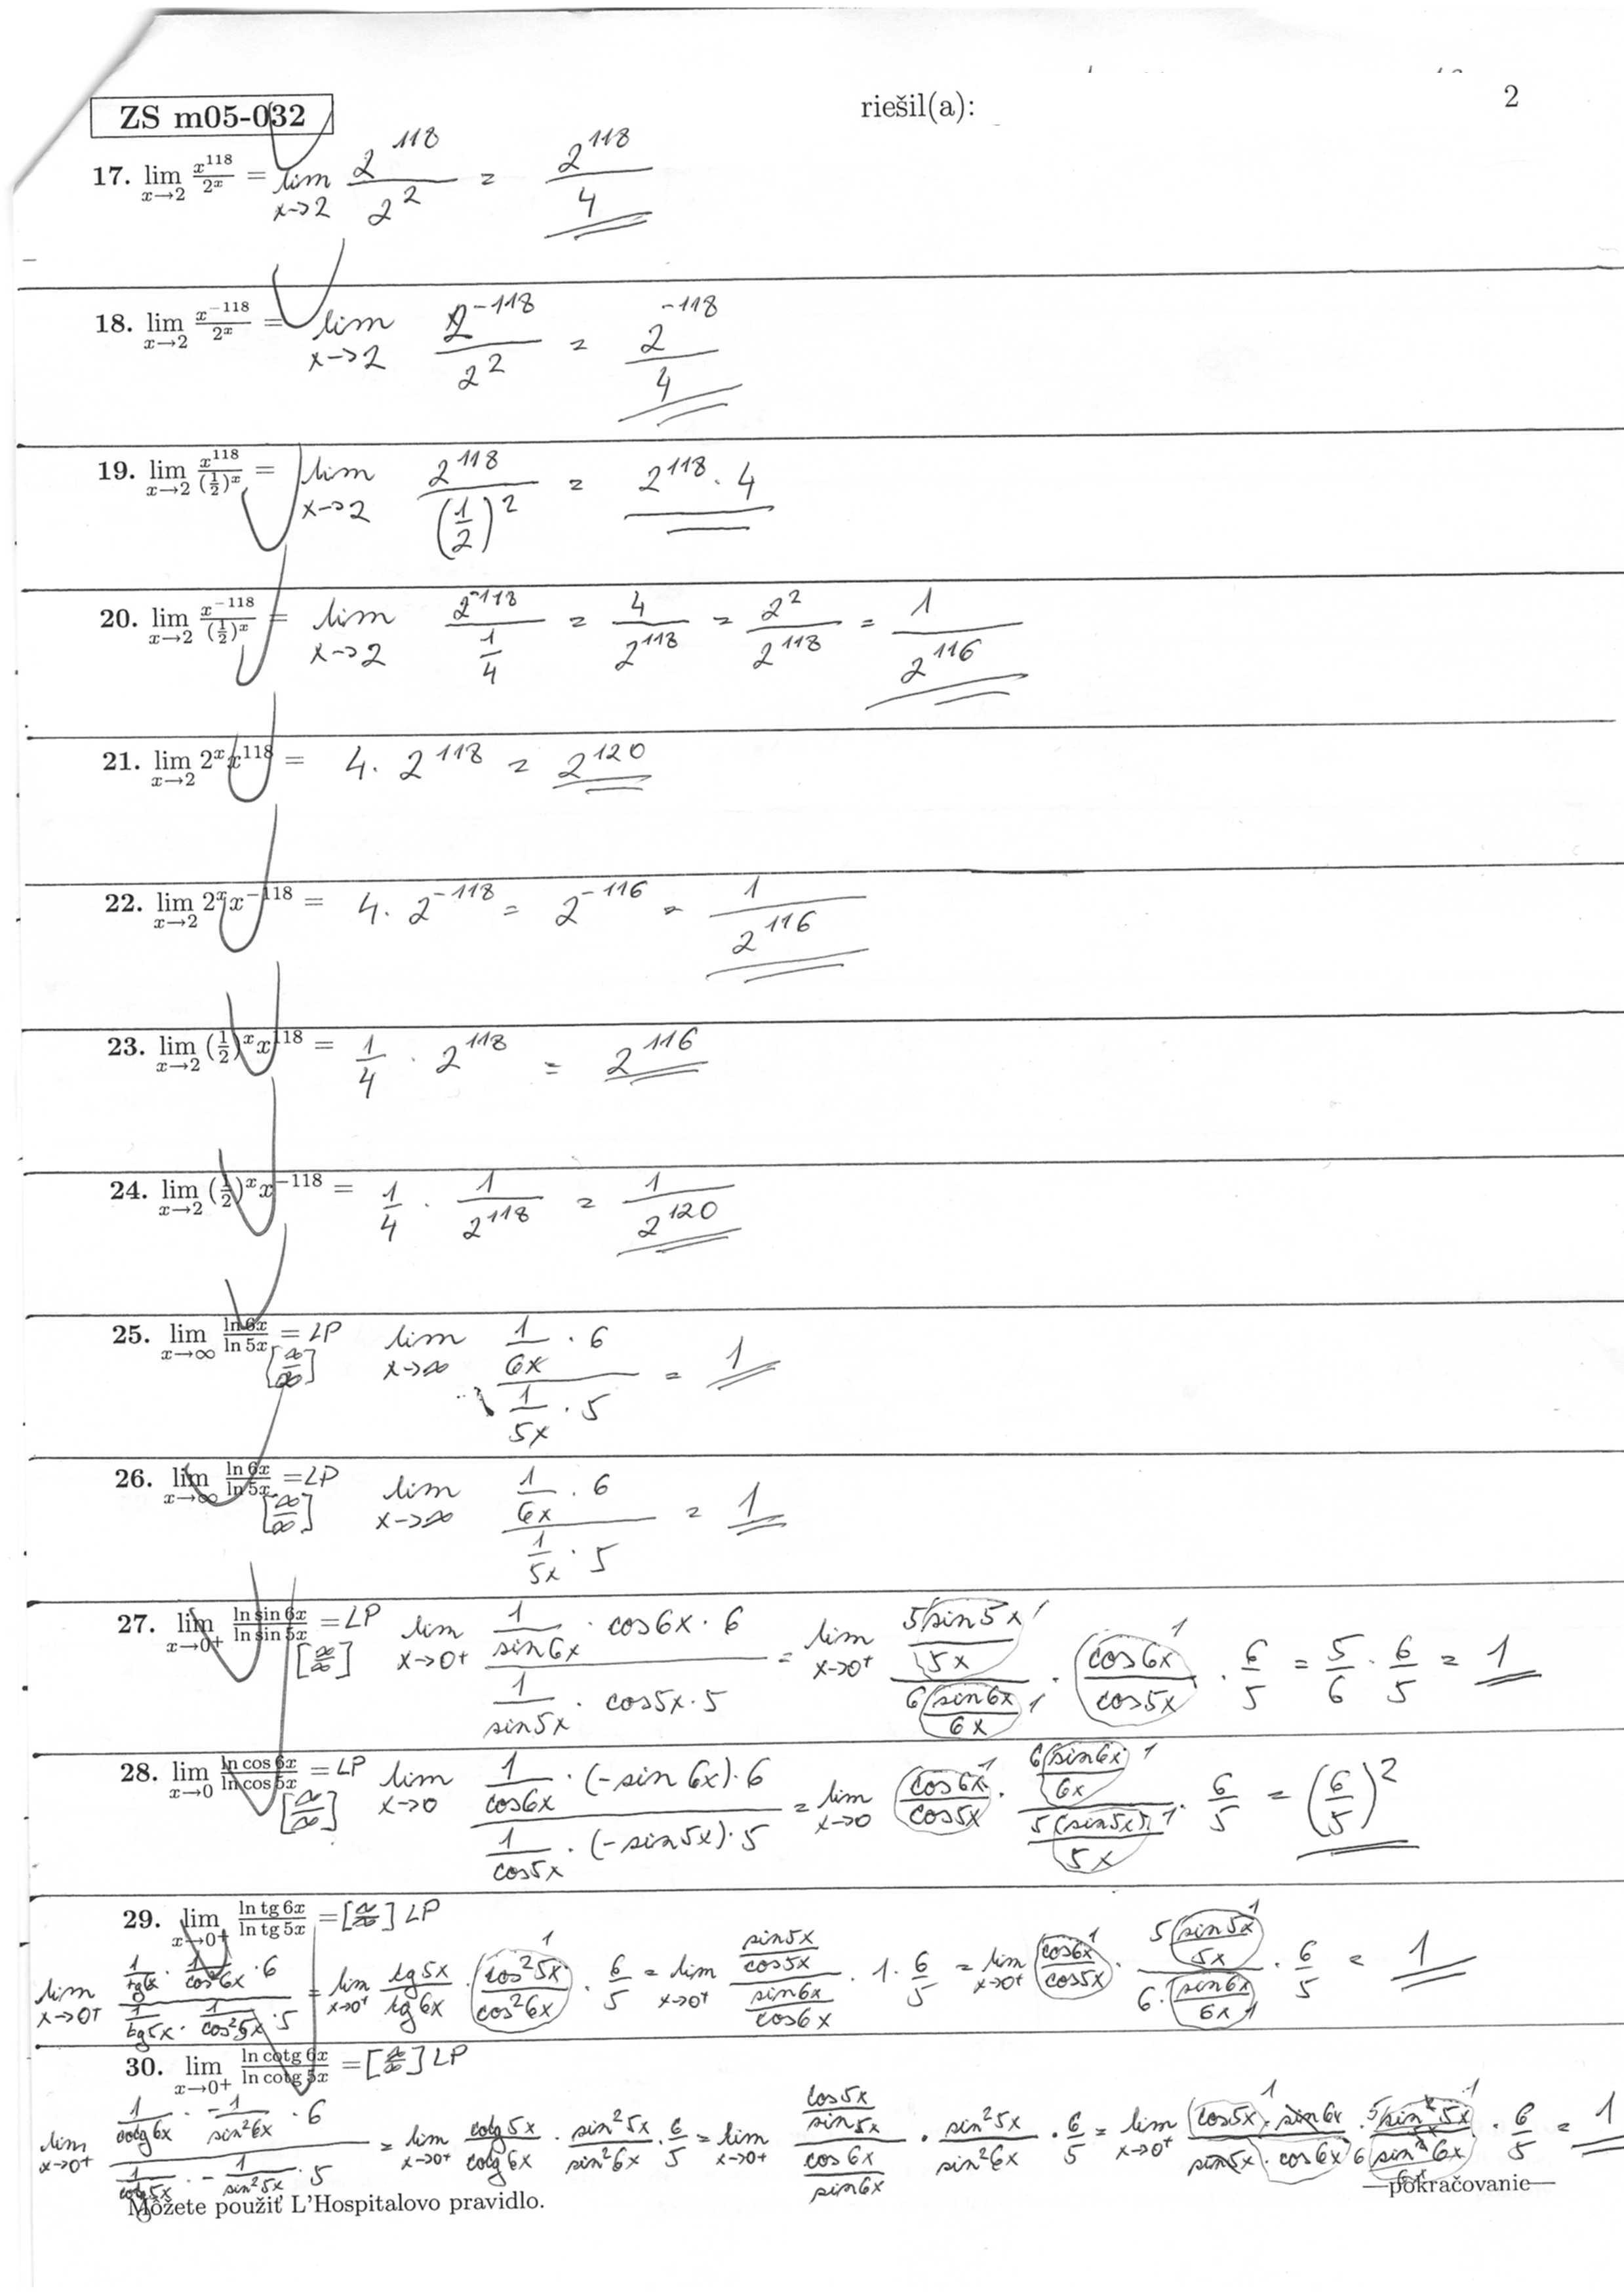 ZS m05-032 riešil(a): 2
17. lim x→2 x^118/2^x = lim x→2 2^118/2^2 = 2^118/4
18. lim x→2 x^-118/2^x = lim x→2 2^-118/2^2 = 2^-118/4
19. lim x→2 x^118/(1/2)^x = lim x→2 2^118/(1/2)^2 = 2^118 · 4
20. lim x→2 x^-118/(1/2)^x = lim x→2 2^-118/(1/4) = 4/2^118 = 2^2/2^118 = 1/2^116
21. lim x→2 2^x x^118 = 4 · 2^118 = 2^120
22. lim x→2 2^x x^-118 = 4 · 2^-118 = 2^-116 = 1/2^116
23. lim x→2 (1/2)^x x^118 = 1/4 · 2^118 = 2^116
24. lim x→2 (1/2)^x x^-118 = 1/4 · 1/2^118 = 1/2^120
25. lim x→∞ ln 6x/ln 5x = LP [∞/∞] lim x→∞ (1/6x · 6)/(1/5x · 5) = 1
26. lim x→∞ ln 6x/ln 5x = LP [∞/∞] lim x→∞ (1/6x · 6)/(1/5x · 5) = 1
27. lim x→0+ ln sin 6x/ln sin 5x = LP [∞/∞] lim x→0+ (1/sin6x · cos6x · 6)/(1/sin5x · cos5x · 5) = lim x→0+ (5 sin5x/5x)/(6 sin6x/6x) · cos6x/cos5x · 6/5 = 5/6 · 6/5 = 1
28. lim x→0 ln cos 6x/ln cos 5x = LP [∞/∞] lim x→0 (1/cos6x · (-sin6x) · 6)/(1/cos5x · (-sin5x) · 5) = lim x→0 cos6x/cos5x · (6 sin6x/6x)/(5 sin5x/5x) · 6/5 = (6/5)^2
29. lim x→0+ ln tg 6x/ln tg 5x = [∞/∞] LP
lim x→0+ (1/tg6x · 1/cos^2 6x · 6)/(1/tg5x · 1/cos^2 5x · 5) = lim x→0+ tg5x/tg6x · cos^2 5x/cos^2 6x · 6/5 = lim x→0+ (sin5x/cos5x)/(sin6x/cos6x) · 1 · 6/5 = lim x→0+ cos6x/cos5x · (5 sin5x/5x)/(6 · sin6x/6x) · 6/5 = 1
30. lim x→0+ ln cotg 6x/ln cotg 5x = [∞/∞] LP
lim x→0+ (1/cotg6x · -1/sin^2 6x · 6)/(1/cotg5x · -1/sin^2 5x · 5) = lim x→0+ cotg5x/cotg6x · sin^2 5x/sin^2 6x · 6/5 = lim x→0+ (cos5x/sin5x)/(cos6x/sin6x) · sin^2 5x/sin^2 6x · 6/5 = lim x→0+ cos5x · sin6x/sin5x · cos6x · 5 sin^2 5x/6 sin^2 6x · 6/5 = 1
Môžete použiť L'Hospitalovo pravidlo. —pokračovanie—